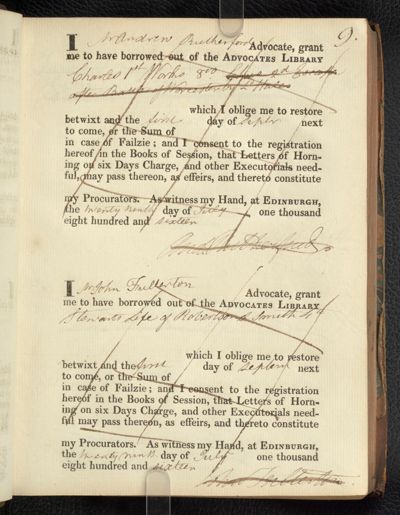 9.
I Mr Andrew Rutherford Advocate, grant
me to have borrowed out of the ADVOCATES LIBRARY
Charles 1st Works 8vo
after Battle of Worcester by
which I oblige me to restore
betwixt and the first day of Septr next
to come, or the Sum of
in case of Failzie; and I consent to the registration
hereof in the Books of Session, that Letters of Horn-
ing on six Days Charge, and other Executorials need-
ful, may pass thereon, as effeirs, and thereto constitute
my Procurators. As witness my Hand, at EDINBURGH,
the twenty ninth day of July one thousand
eight hundred and sixteen
I Mr John Fullerton
Advocate, grant
me to have borrowed out of the ADVOCATES LIBRARY
Stewarts Life of Robertson & Smith 4to
which I oblige me to restore
betwixt and the first day of Septemr next
to come, or the Sum of
in case of Failzie; and I consent to the registration
hereof in the Books of Session, that Letters of Horn-
ing on six Days Charge, and other Executorials need-
ful may pass thereon, as effeirs, and thereto constitute
my Procurators. As witness my Hand, at EDINBURGH,
the twenty ninth day of July one thousand
eight hundred and sixteen
Fullerton